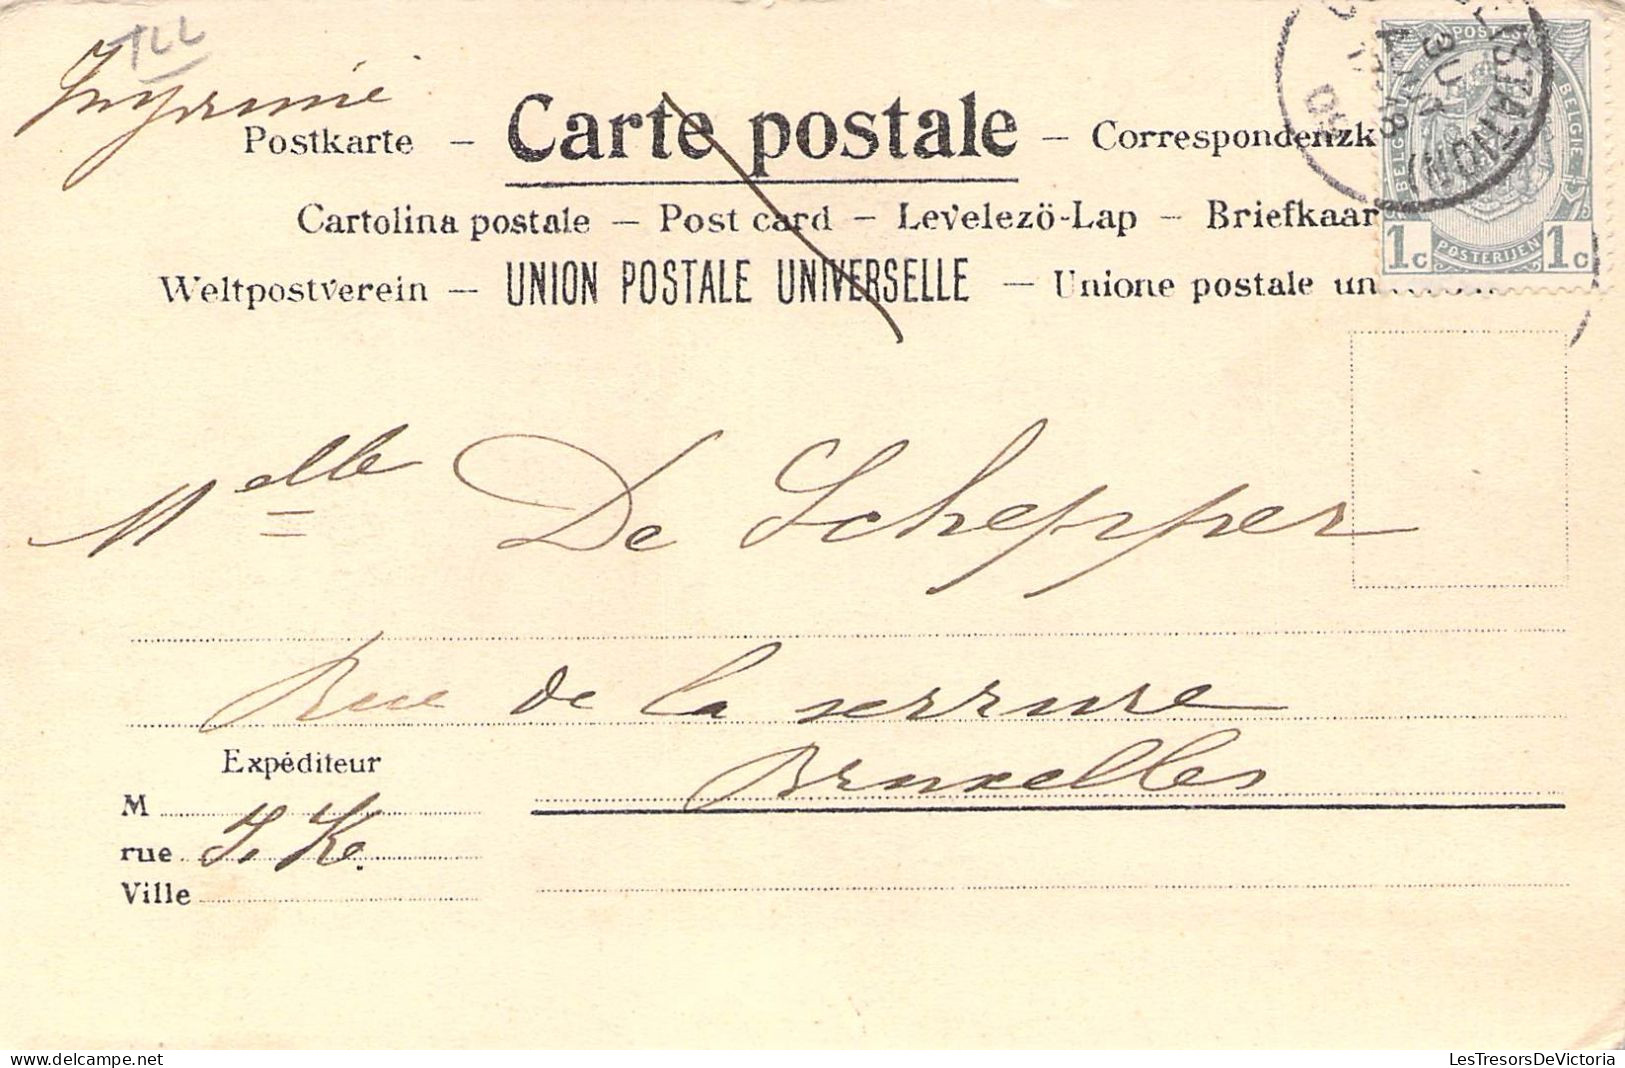 TLL
Imprimé
Postkarte – Carte postale – Correspondenzk
Cartolina postale – Post card – Levelezö-Lap – Briefkaar
Weltpostverein – UNION POSTALE UNIVERSELLE – Unione postale un
POSTES
BELGIQUE BELGIE
1c POSTERIJEN 1c
Melle De Schepper
Rue de la serrure
Bruxelles
Expéditeur
M
rue J. K.
Ville
LesTresorsDeVictoria